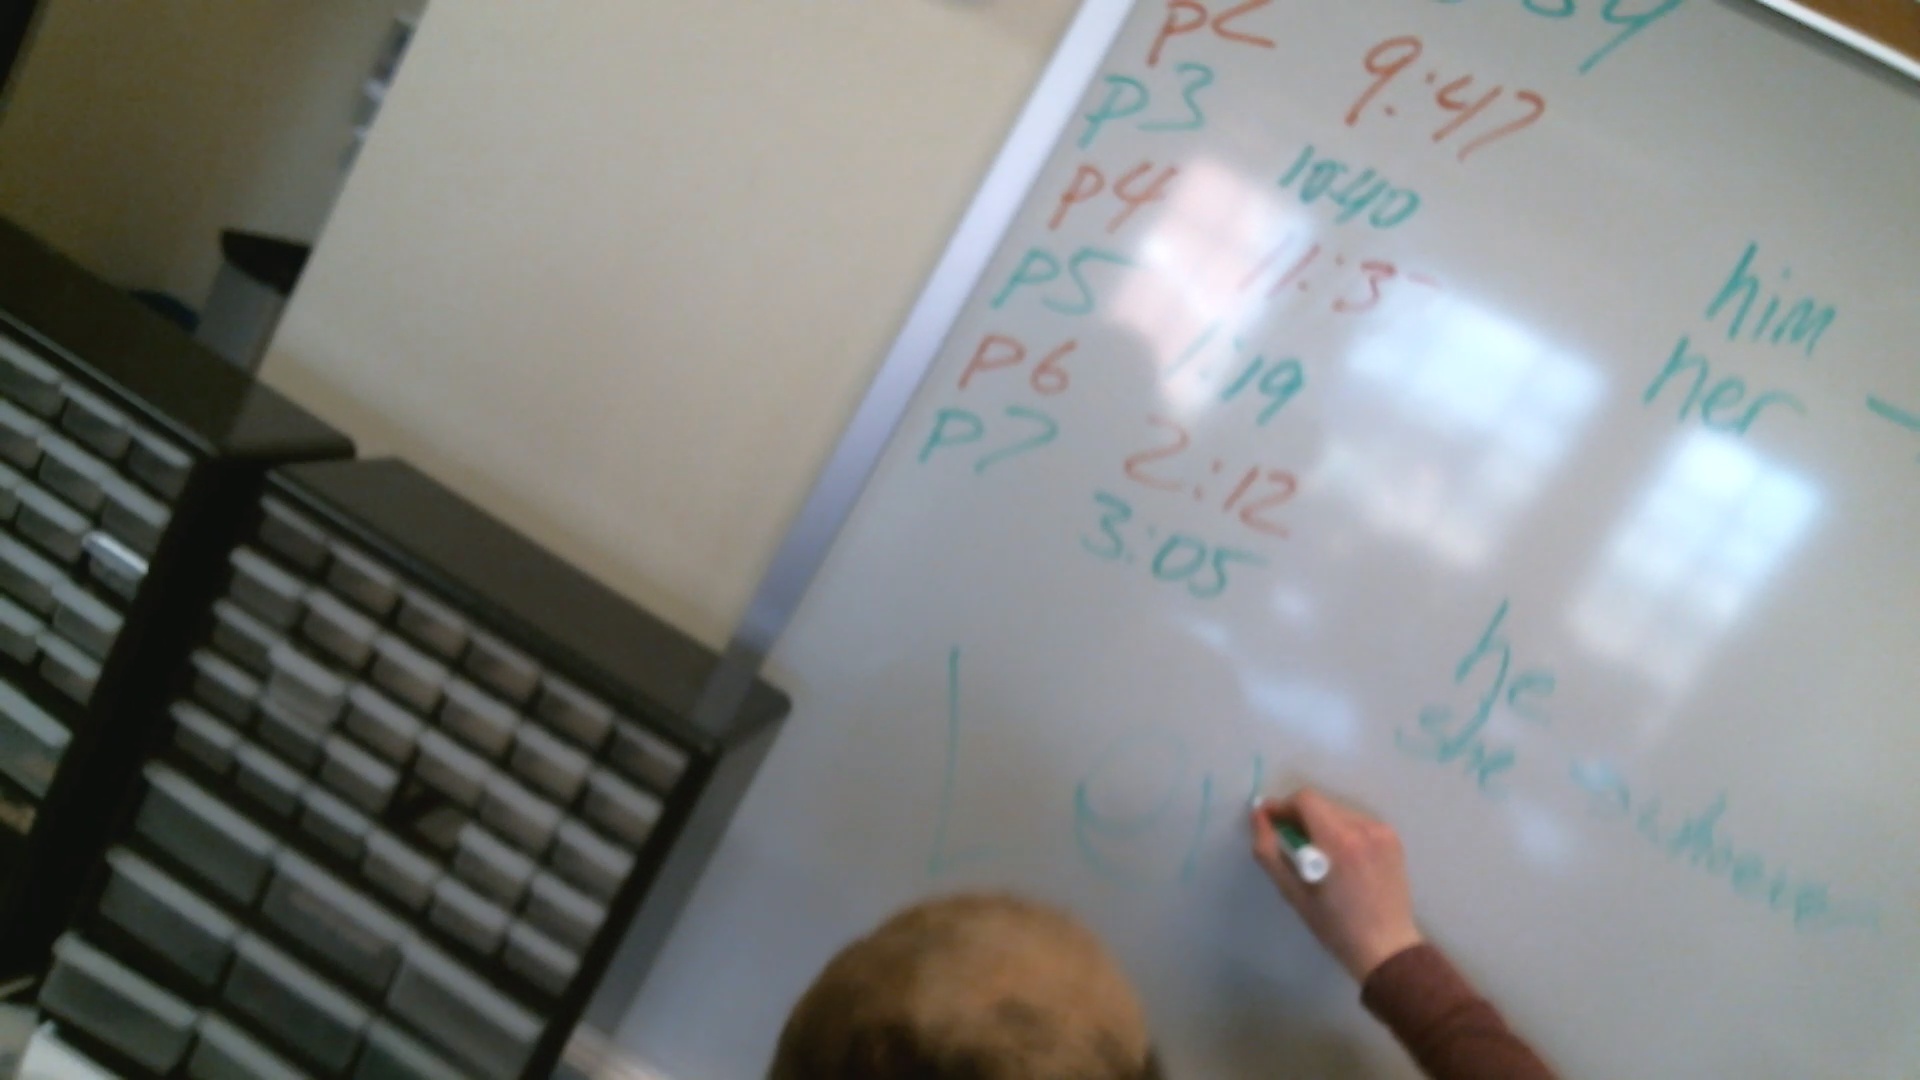 p2 9:47
p3 10:40
p4
p5 1:19
p6 2:12
p7 3:05
him
her
he
she
Ler